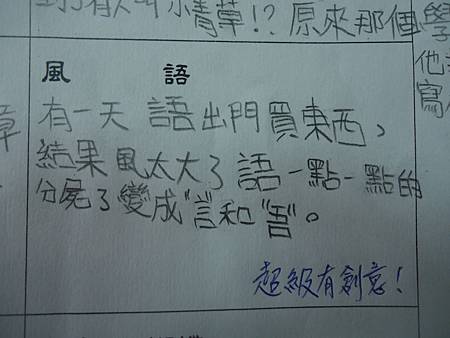 到了有人叫小青草!?原來那個學
他
寫
章
風 語
有一天 語出門買東西,
結果風太大了語一點一點的
分屍了變成"言和"吾"。
超級有創意!